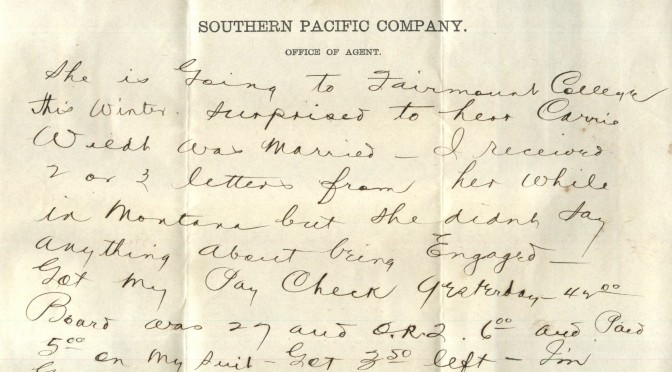 SOUTHERN PACIFIC COMPANY.
OFFICE OF AGENT.
She is Going to Fairmount College
this Winter. Surprised to hear Carrie
was Married – I received
2 or 3 letters from her while
in Montana but she didnt say
anything About being Engaged –
Got My Pay Check Yesterday –
Board was 27 and 6 00 and Paid
5 00 on My Suit – Got 3 50 left – I'm